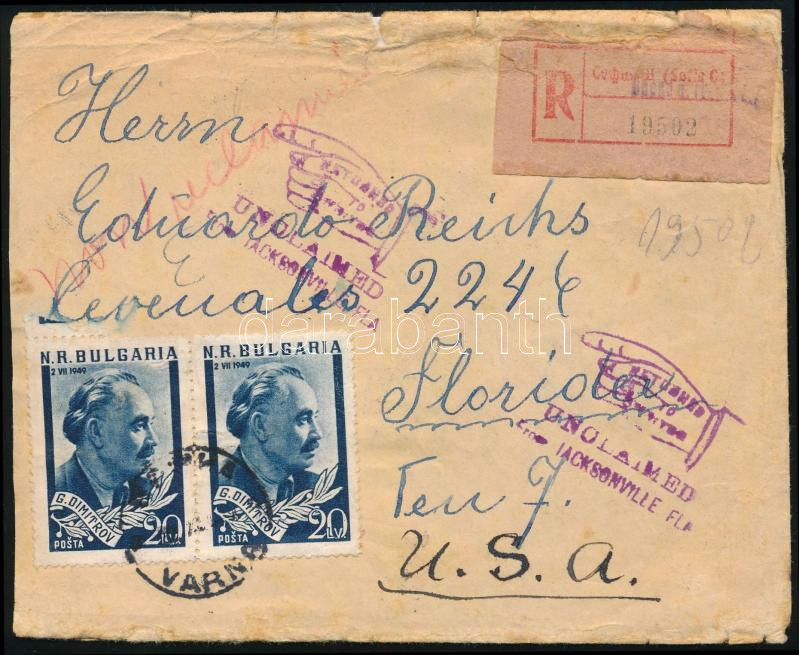 Herrn
Eduardo Reichs
2246
Florida
U. S. A.
R
(Sofia
19502
19502
RETURNED
TO
UNCLAIMED
JACKSONVILLE FLA
RETURNED
TO
UNCLAIMED
JACKSONVILLE FLA
N.R. BULGARIA
2 VII 1949
G. DIMITROV
20 LV.
POŠTA
N.R. BULGARIA
2 VII 1949
G. DIMITROV
20 LV.
POŠTA
VARNA
darabanth